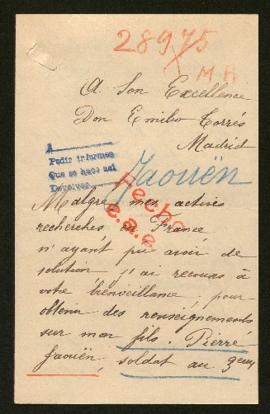 28975
M A
A Son Excellence
Don Emilio Torrés
Madrid
A
Pedir informes
Que se hace así
Devolver
Jaouën
Hecho
Malgré mes actives
recherches en France
n'ayant pu avoir de
solution j'ai recours à
votre bienveillance, pour
obtenir des renseignements
sur mon fils. Pierre
Jaouën, soldat au 3eme